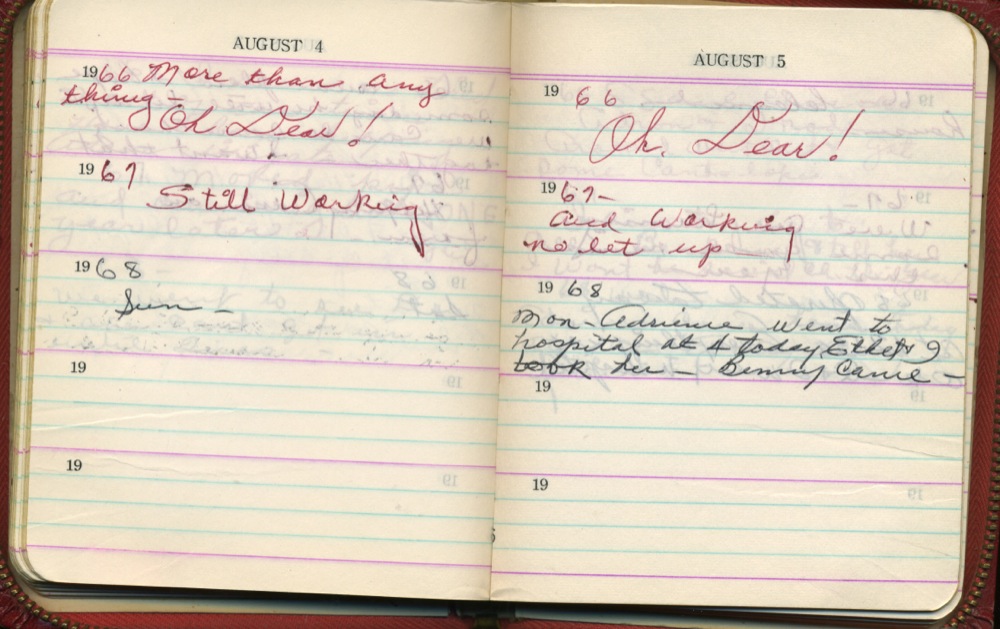 AUGUST 4
1966 More than any
thing -
Oh Dear!
1967
Still Working
1968
Sun -
19
19
AUGUST 5
1966
Oh, Dear!
1967-
and Working
no let up
1968
Mon - Adrienne went to
hospital at 4 today Ethel & I
took her - Benny Came -
19
19